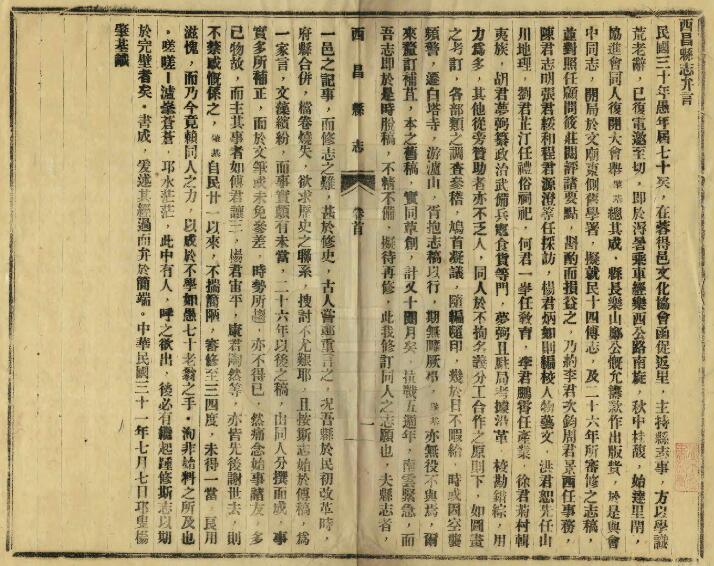 西昌縣志弁言
民國三十年愚年屆七十矣，在蓉得邑文化協會函促返里，主持縣志事，方以學識
荒老辭，已復電邀至切，即於溽暑乘車經樂西公路南旋，秋中桂馥，始達里閈，
協進會同人復開大會舉肇基總其成，縣長樂山鄺公慨允籌款作出版費，於是與會
中同志，開局於文廟東側舊學署，擬就民十四傅志，及二十六年所審修之志稿，
並對照任顧問筱莊閱評諸要點，斟酌而損益之，乃約李君次鈞周君景西任事務，
陳君志明張君綏和程君源澄等任採訪，楊君炳如則編校人物藝文，洪君恕先任山
川地理，劉君芷汀任禮俗祠祀，何君一峯任敎育，李君鵬霄任產業，徐君菊村輯
夷族，胡君夢弼纂政治武備兵寇食貨等門，夢弼且駐局考據沿革，校勘錯綜，用
力爲多，其他從旁贊助者亦不乏人，同人於不拘名義分工合作之原則下，如圖畫
之考訂，各部類之調查參稽，鳩首凝議，隨編隨印，幾於日不暇給，時或因空襲
頻警，遷白塔寺，游瀘山，胥抱志稿以行，期無曠厥事，肇基亦無役不與焉，爾
來釐訂補苴，本之舊稿，實同草創，計又十閱月矣，抗戰五週年，南雲緊急，而
吾志即於是時脫稿，不精不備，擬待再修，此我修訂同人之志願也，夫縣志者，
西昌縣志
卷首
一
一邑之記事，而修志之難，甚於修史，古人嘗鄭重言之，况吾縣於民初改革時，
府縣合併，檔卷燒失，欲求歷史之聯系，搜討不尤艱耶，且按斯志始於傅稿，爲
一家言，文藻繽紛，而事實頗有未當，二十六年以後之稿，由同人分撰而成，事
實多所補正，而於文筆或未免參差，時勢所趨，亦不得已，然痛念始事諸友，多
已物故，而主其事者如傅君讓三，楊君宙平，康君陶然等，亦皆先後謝世去，則
不禁感慨係之，肇基自民廿一以來，不揣譾陋，審修至三四度，未得一當，良用
滋愧，而乃今竟賴同人之力，以成於不學如愚七十老翁之手，洵非始料之所及也
。嗟嗟！瀘峯蒼蒼，邛水茫茫，此中有人，呼之欲出，後必有繼起踵修斯志以期
於完璧者矣。書成，爰述其經過而弁於簡端。中華民國三十一年七月七日邛叟楊
肇基識